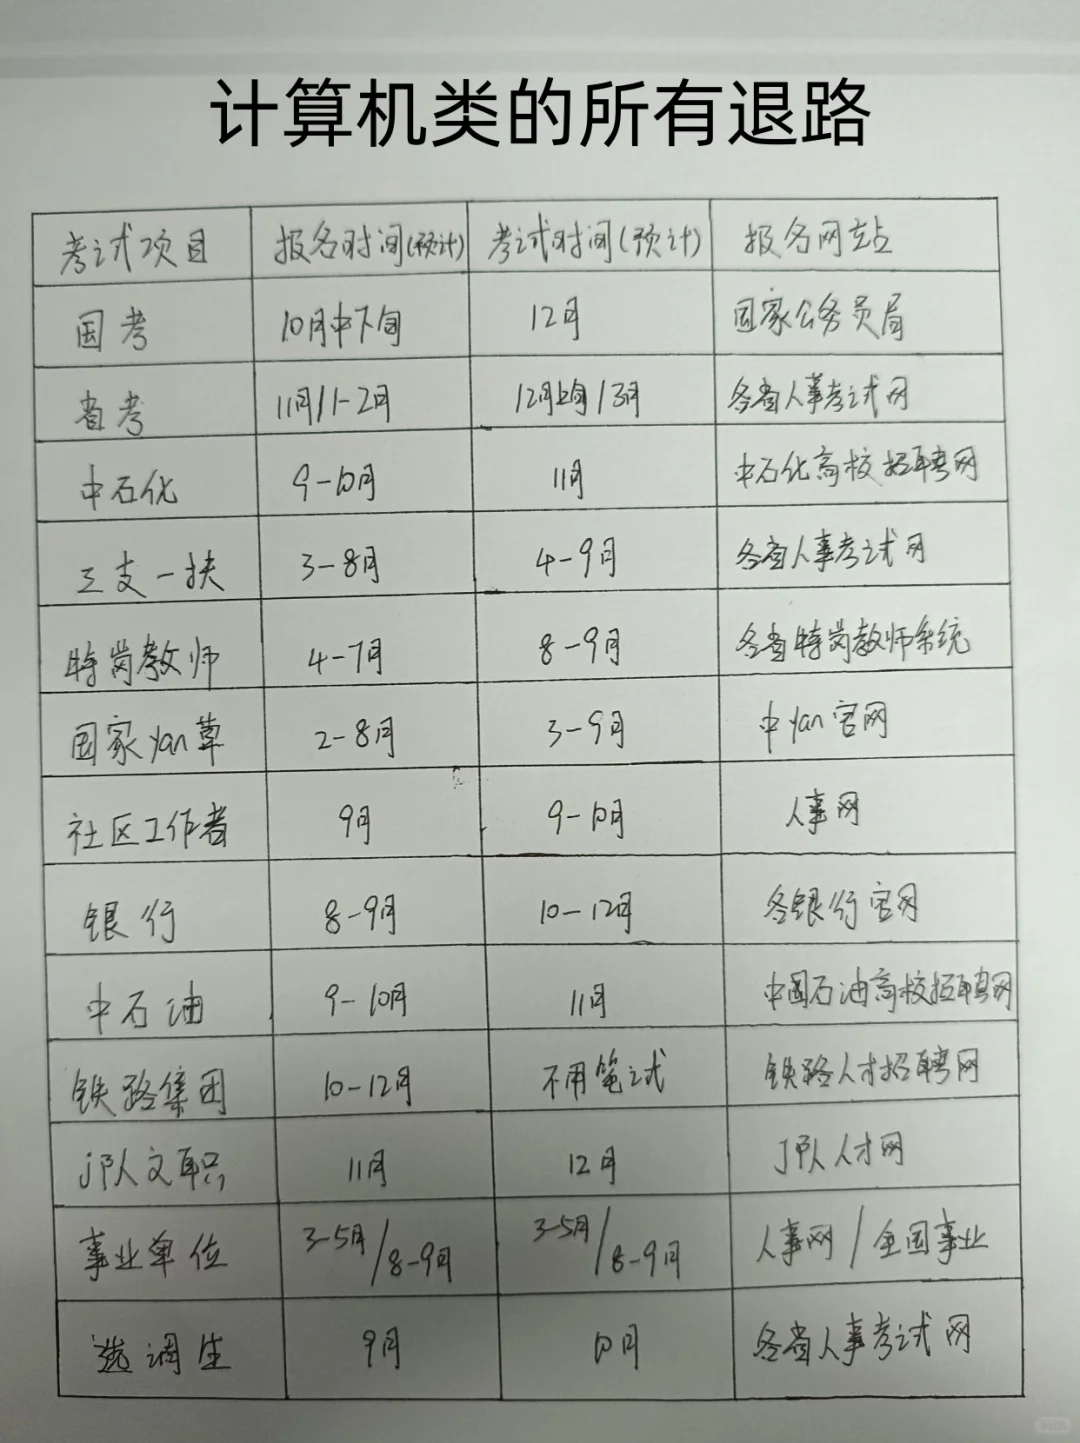 计算机类的所有退路
考试项目 报名时间(预计) 考试时间(预计) 报名网站
国考 10月中下旬 12月 国家公务员局
省考 11月/1-2月 12月上旬/3月 各省人事考试网
中石化 9-10月 11月 中石化高校招聘网
三支一扶 3-8月 4-9月 各省人事考试网
特岗教师 4-7月 8-9月 各省特岗教师系统
国家yan草 2-8月 3-9月 中yan官网
社区工作者 9月 9-10月 人事网
银行 8-9月 10-12月 各银行官网
中石油 9-10月 11月 中国石油高校招聘网
铁路集团 10-12月 不用笔试 铁路人才招聘网
j队文职 11月 12月 J队人才网
事业单位 3-5月/8-9月 3-5月/8-9月 人事网/全国事业
选调生 9月 10月 各省人事考试网